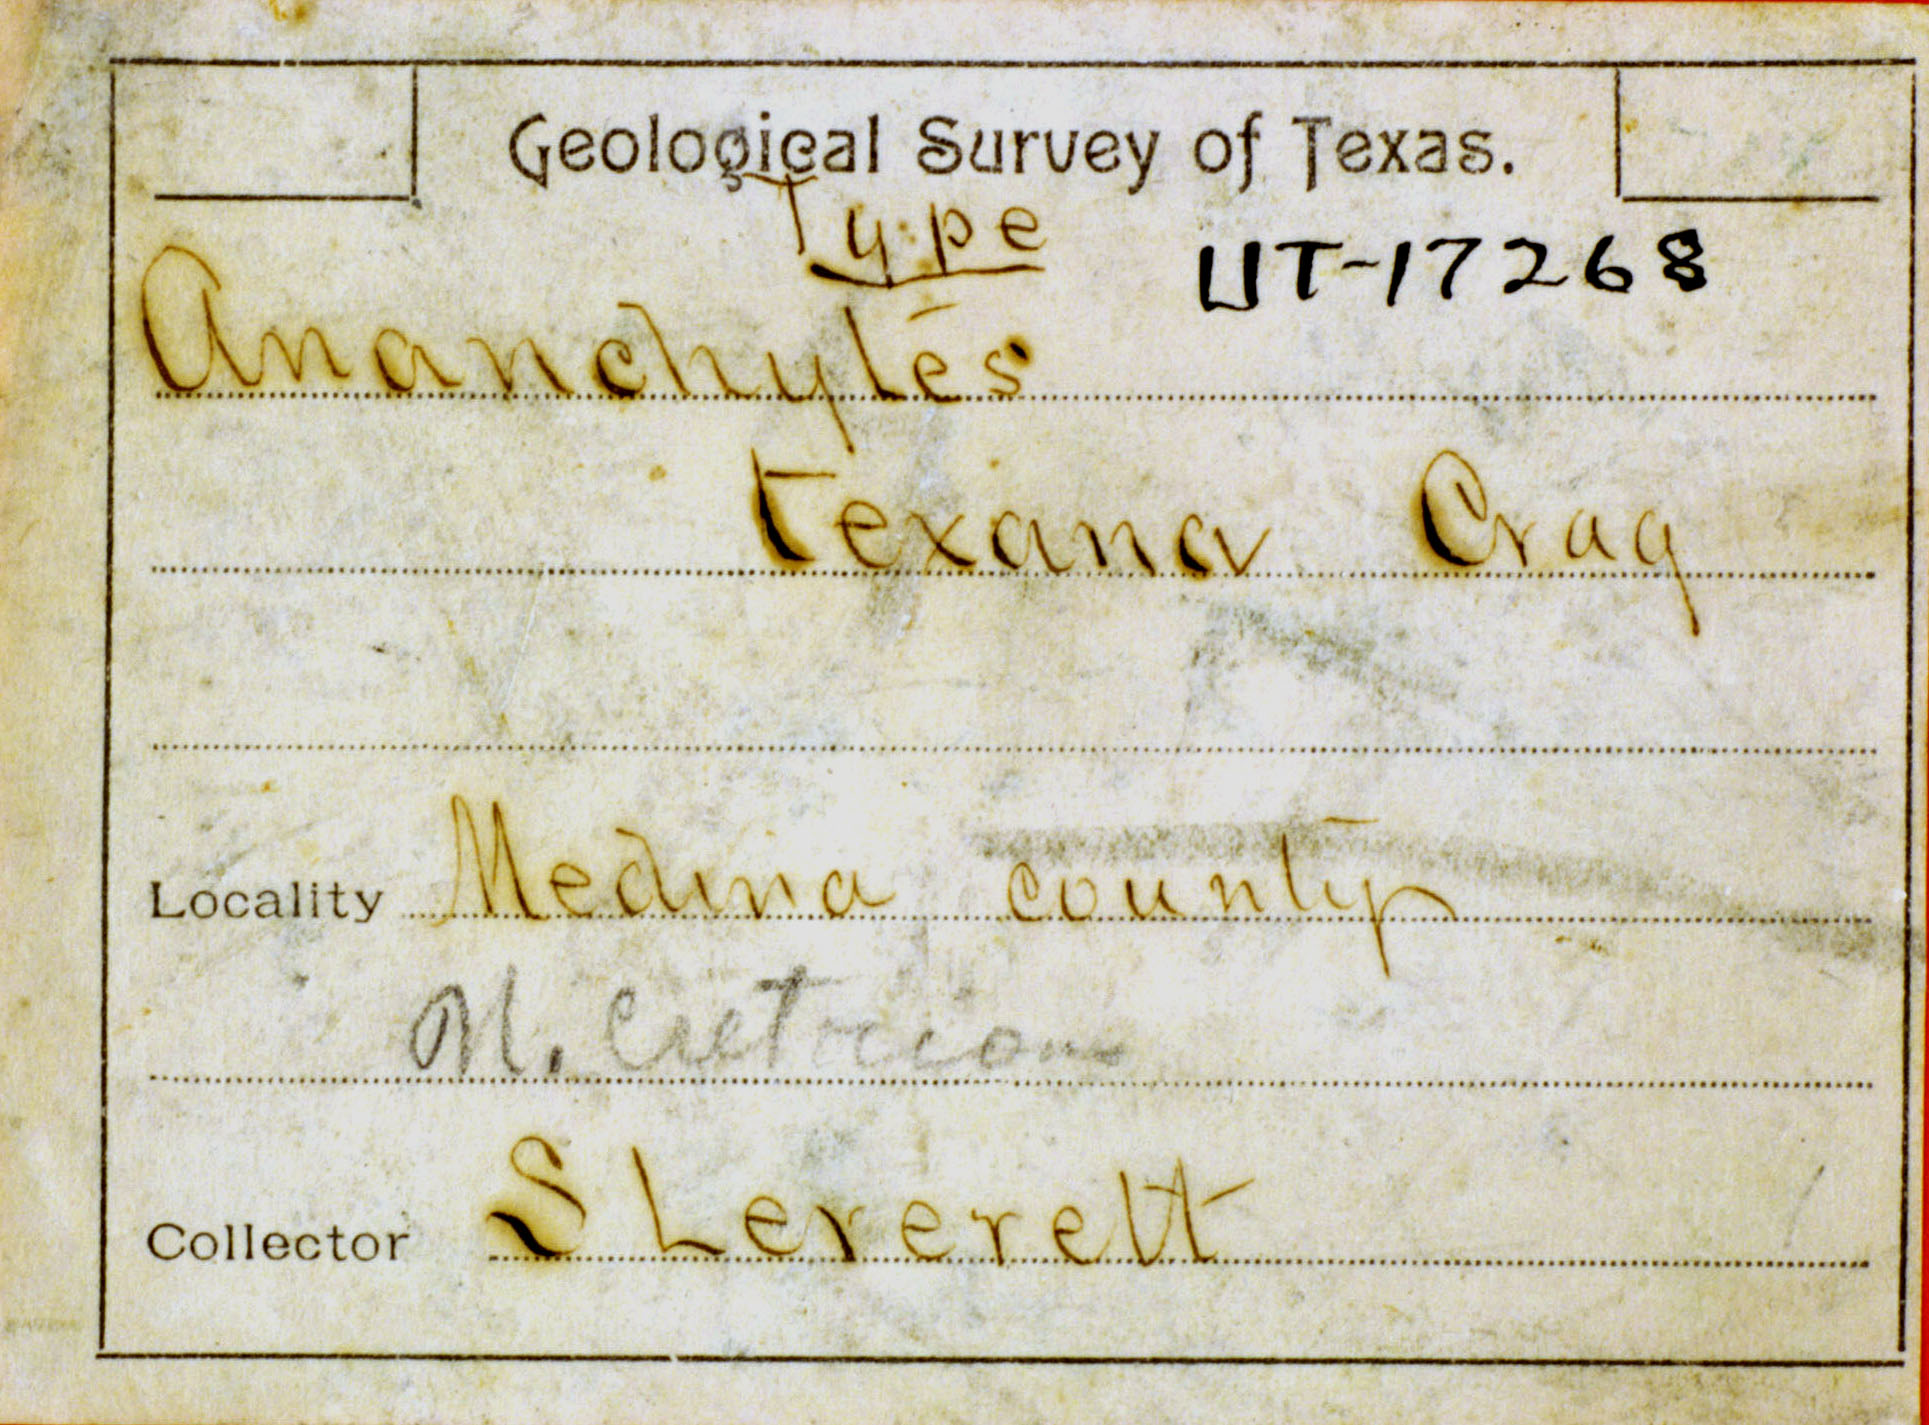 Geological Survey of Texas.
Type
UT-17268
Ananchytes
texana Crag
Locality Medina county
Collector S Leverett